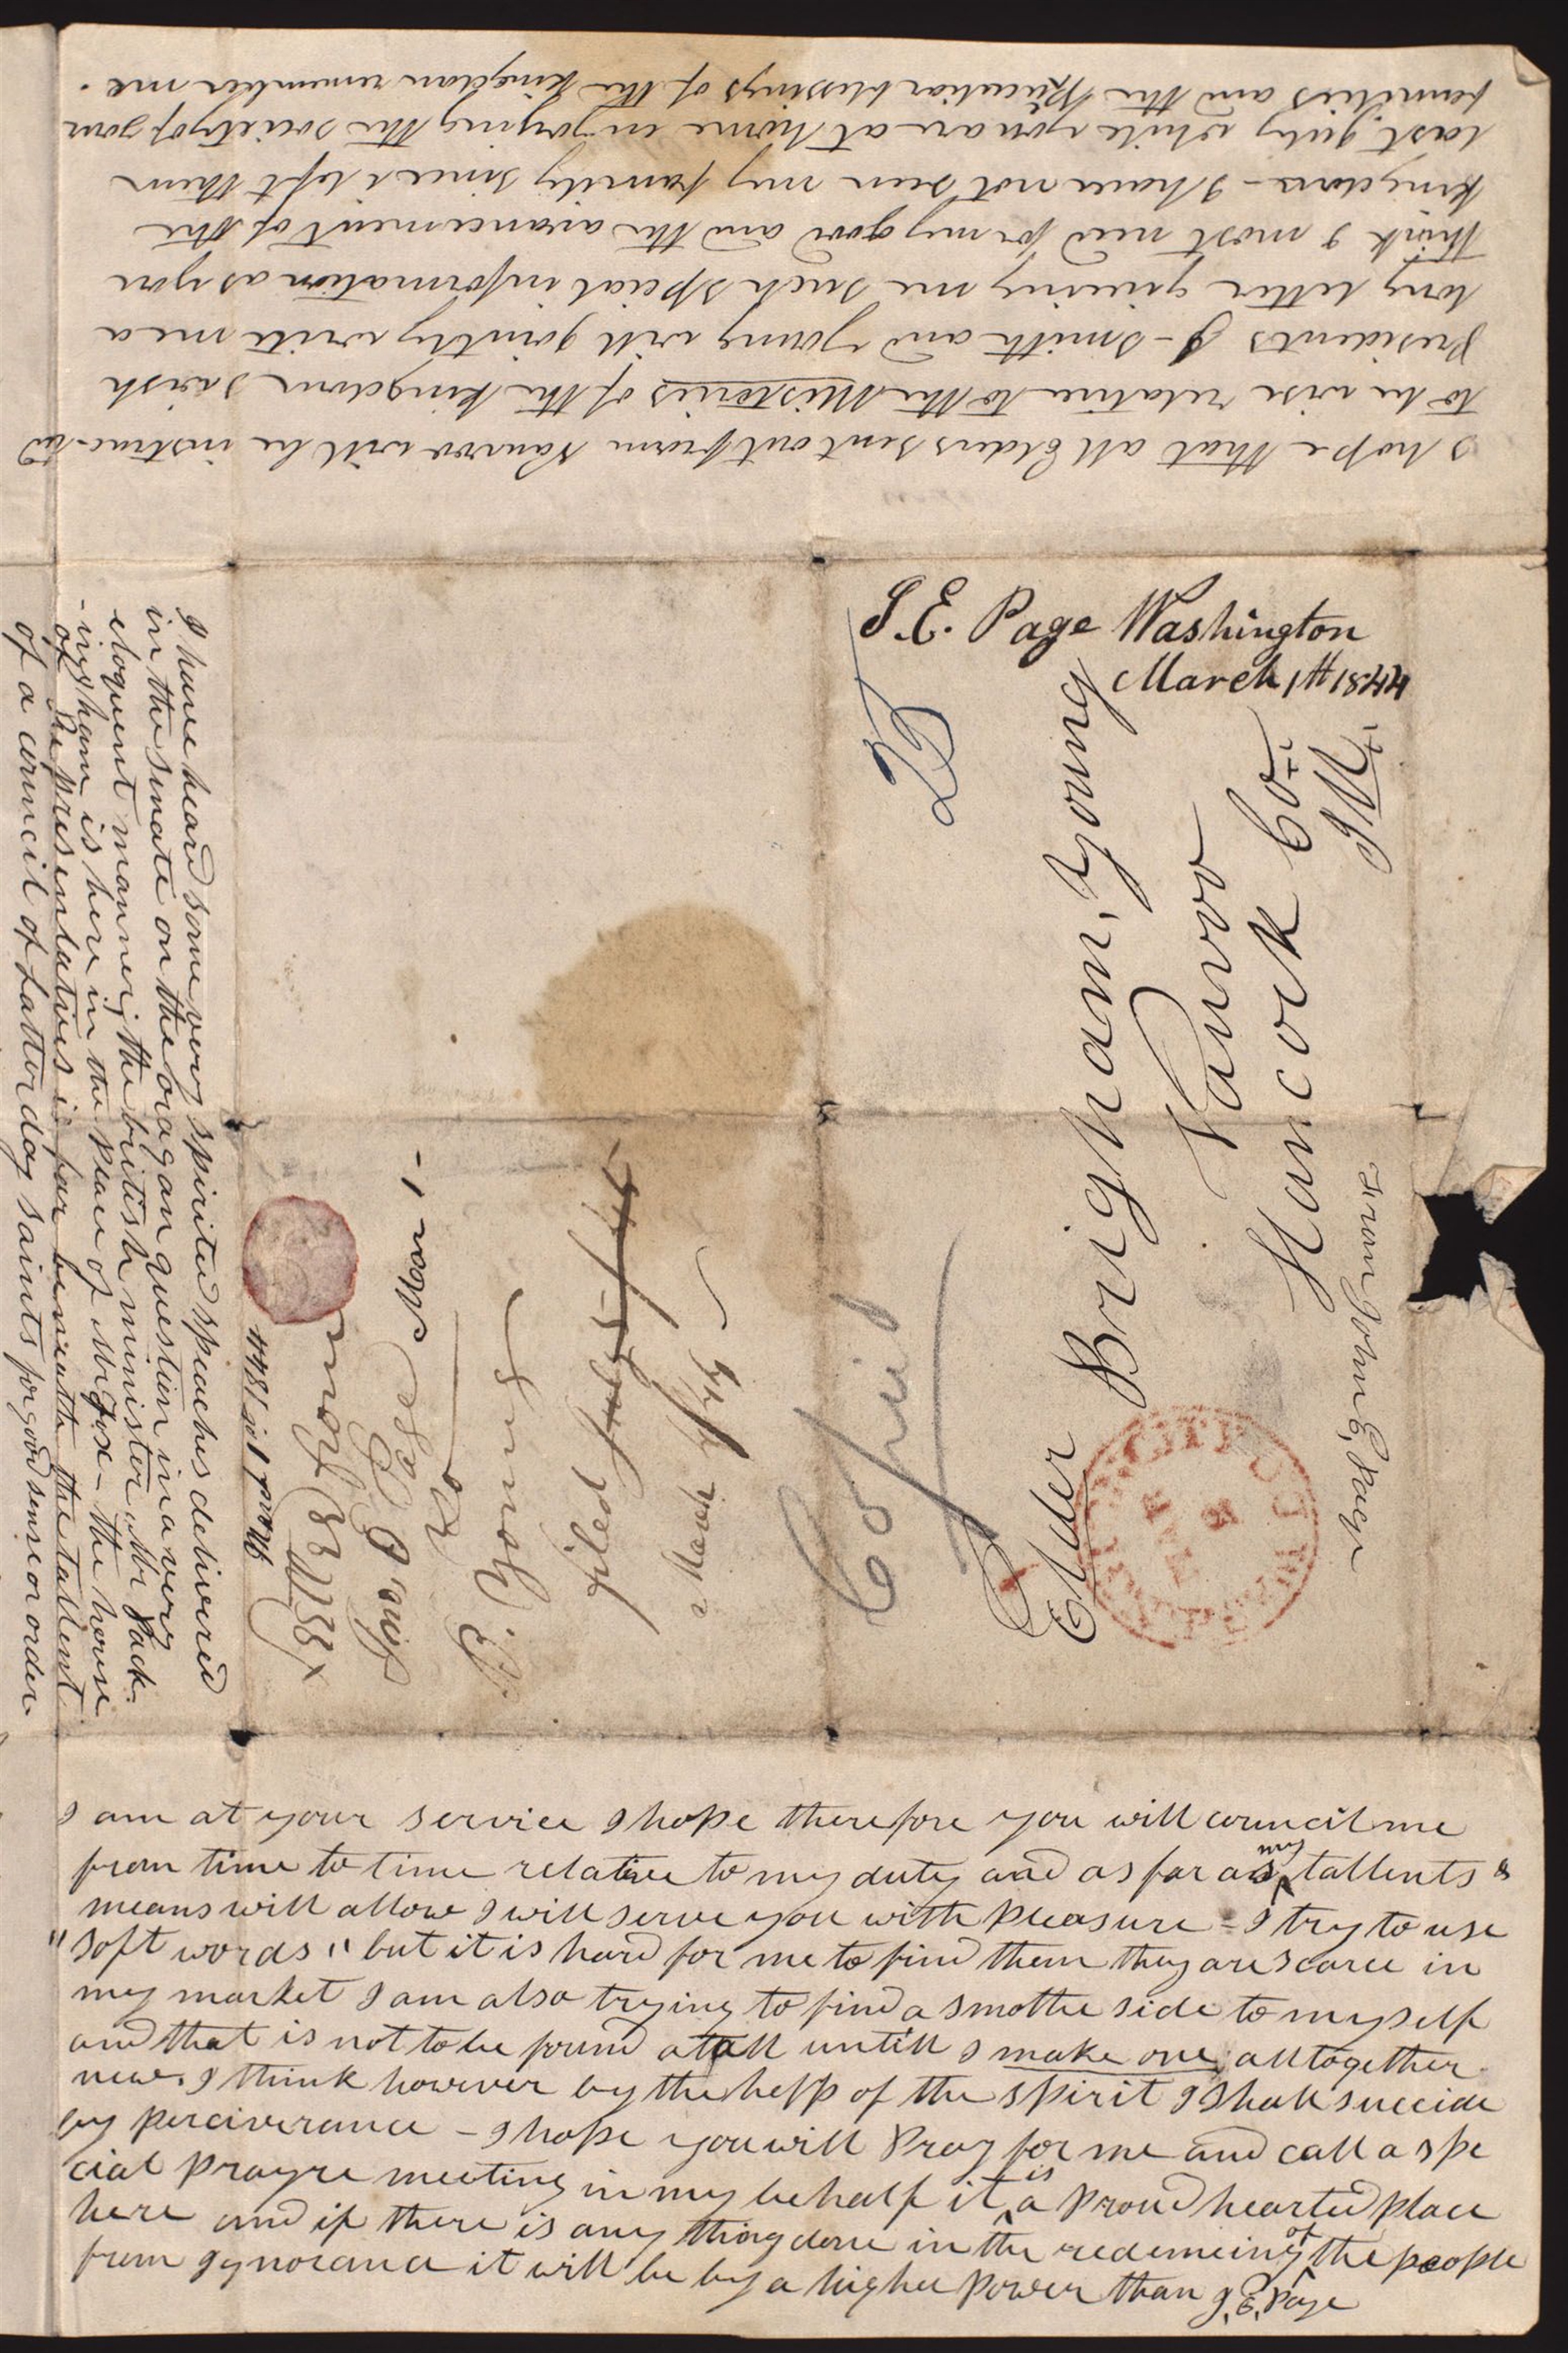 I hope that all Elders sent out from Nauvoo will be instruc-ted
to be wise relative to the Misteries of the kingdom I wish
Presidents J- Smith and Young will jointly write me a
long letter giveing me such special information as you
think I most need for my good and the avancement of the
kingdom - I have not seen my family since I left them
last July while you are at home injoying the society of your
families and the Peculiar blessings of the kingdom remember me.
J. E. Page Washington
March 1st 1844
25
Elder Brigham, Young
Nauvoo
Hancock Co.
Ill
From John E, Page
CITY
MAR
Copied
Jno E Page Mar 1-
to
B. Young
filed
March 1/44
March 1st 1844
I have heard some very spirited speaches delivered
in the senate on the oragan question in a very
eloquent manner; the british minister Mr Pack-
-ingham is here in the place of Mr Fox - the house
of Representatives is far beneath the tallent
of a council of Latter day saints for good sense or order.
I am at your service I hope therefore you will council me
from time to time relative to my duty and as far as my tallents &
means will allow I will serve you with pleasure - I try to use
"soft words" but it is hard for me to find them they are scarce in
my market I am also trying to find a smothe side to myself
and that is not to be found atall untill I make one alltogether
new. I think however by the help of the spirit I shall succide
by perciverance - I hope you will Pray for me and call a spe
cial prayre meeting in my behalf it is a proud hearted place
here and if there is any thing done in the redemeing of the people
from ignorance it will be by a higher power than J. E, Page